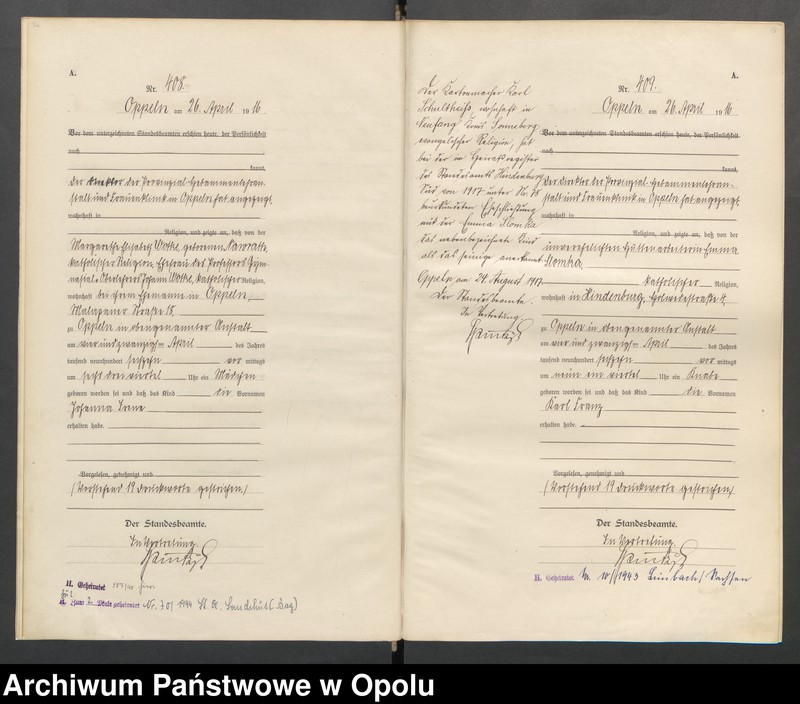 A.
Nr. 408.
Oppeln am 26. April 1916
Vor dem unterzeichneten Standesbeamten erschien heute, der Persönlichkeit
nach
kannt,
Der Direktor der Provinzial-Hebammenlehran-
stalt und Frauenklinik in Oppeln hat angezeigt,
wohnhaft in
Religion, und zeigte an, daß von der
Margarethe Elisabeth geborenen
katholischer Religion, Ehefrau des Professors Gym-
nasial-Oberlehrers Johann katholischer Religion
wohnhaft bei ihrem Ehemanne in Oppeln,
Malapaner Straße 18,
zu Oppeln in obengenannter Anstalt
am vier und zwanzigsten April des Jahres
tausend neunhundert sechzehn vor mittags
um sechs dreiviertel Uhr ein Mädchen
geboren worden sei und daß das Kind die Vornamen
Johanna Irene
erhalten habe.
Vorgelesen, genehmigt und
(Vorstehend 19 Druckworte gestrichen.)
Der Standesbeamte.
In Vertretung.
H. Geheiratet
Zum 2. Male geheiratet Nr. 70/1944 St. A. Landshut (Bay)
Der Kartonmacher Karl
Schultheiß, wohnhaft in
Neufang Kreis Sonneberg
evangelischer Religion, hat
bei der im Heiratsregister
des Standesamts Hindenburg
Süd von 1917 unter Nr.
beurkundeten Eheschließung
mit der Emma Slomka
das nebenbezeichnete Kind
als das seinige anerkannt.
Oppeln am 24. August 1917.
Der Standesbeamte.
In Vertretung
A.
Nr. 409.
Oppeln am 26. April 1916
Vor dem unterzeichneten Standesbeamten erschien heute, der Persönlichkeit
nach
kannt,
Der Direktor der Provinzial-Hebammenlehran-
stalt und Frauenklinik in Oppeln hat angezeigt,
wohnhaft in
Religion, und zeigte an, daß von der
unverehelichten Hüttenarbeiterin Emma
Slomka,
katholischer Religion,
wohnhaft in Hindenburg,
zu Oppeln in obengenannter Anstalt
am vier und zwanzigsten April des Jahres
tausend neunhundert sechzehn vor mittags
um neun ein viertel Uhr ein Knabe
geboren worden sei und daß das Kind die Vornamen
Karl Franz
erhalten habe.
Vorgelesen, genehmigt und
(Vorstehend 19 Druckworte gestrichen)
Der Standesbeamte.
In Vertretung.
H. Geheiratet Nr. 10/1943 Limbach/Sachsen
Archiwum Państwowe w Opolu